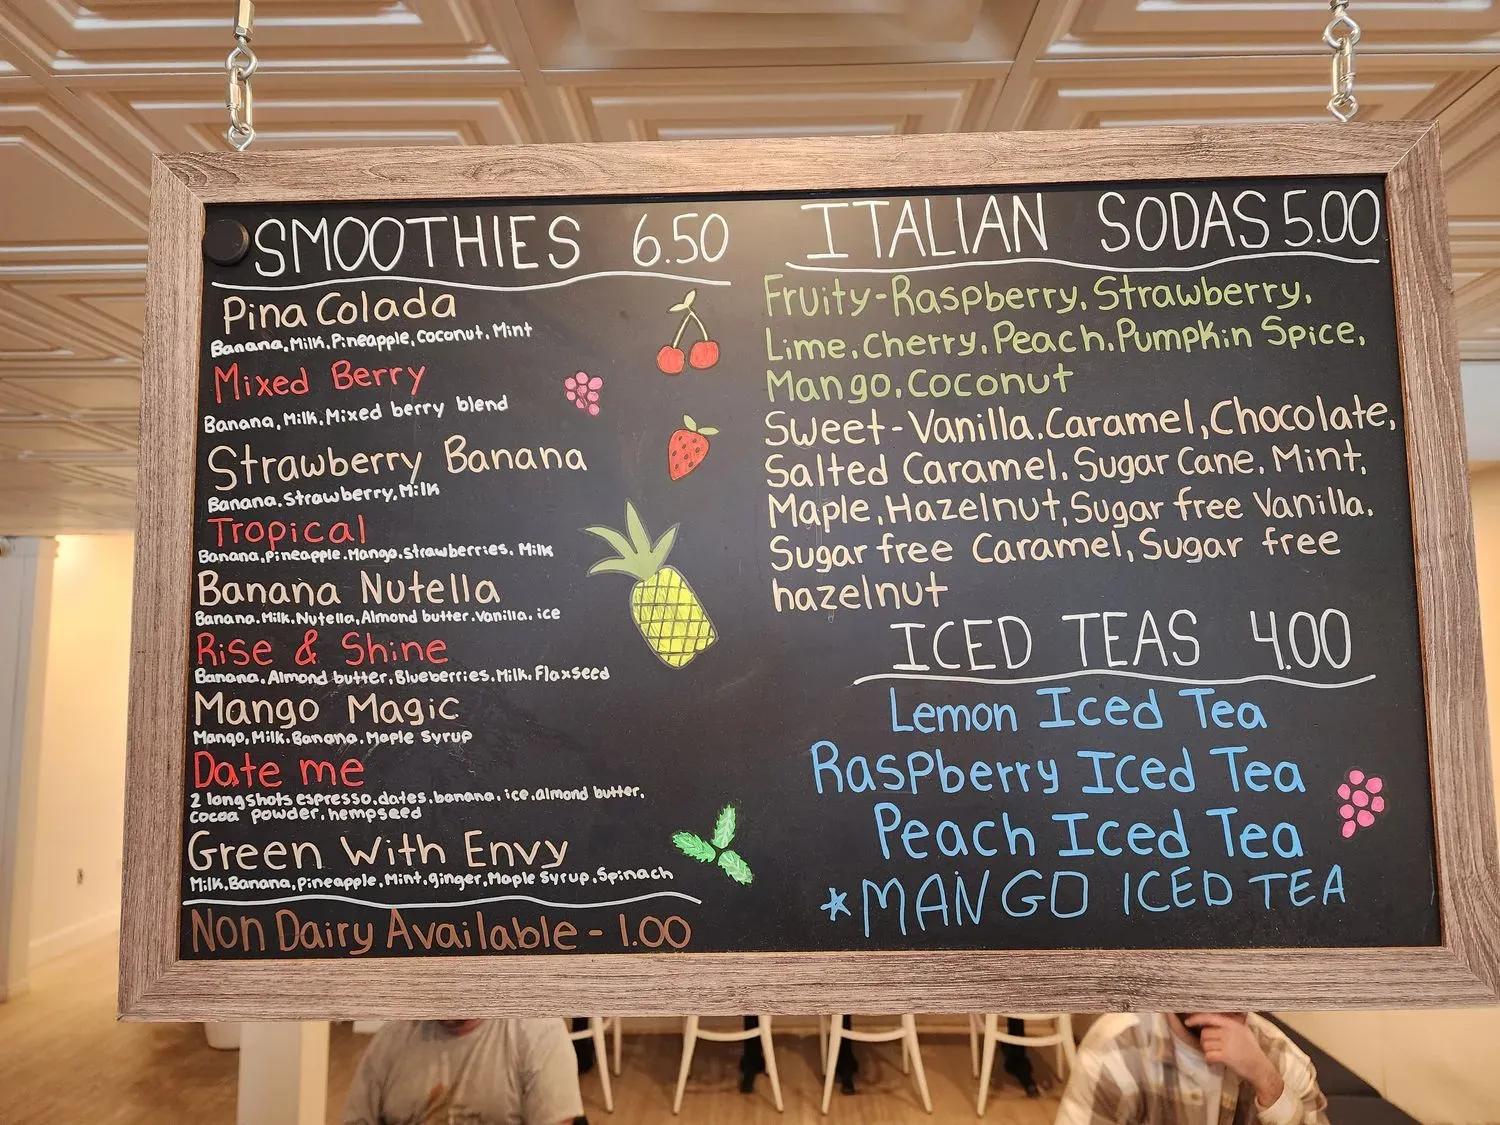 SMOOTHIES 6.50
Pina Colada
Banana, Milk, Pineapple, Coconut, Mint
Mixed Berry
Banana, Milk, Mixed berry blend
Strawberry Banana
Banana, Strawberry, Milk
Tropical
Banana, Pineapple, Mango, Strawberries, Milk
Banana Nutella
Banana, Milk, Nutella, Almond butter, Vanilla, ice
Rise & Shine
Banana, Almond butter, Blueberries, Milk, Flaxseed
Mango Magic
Mango, Milk, Banana, Maple Syrup
Date me
2 long shots espresso, dates, banana, ice, almond butter,
cocoa powder, hempseed
Green With Envy
Milk, Banana, Pineapple, Mint, ginger, Maple Syrup, Spinach
Non Dairy Available - 1.00
ITALIAN SODAS 5.00
Fruity-Raspberry, Strawberry,
Lime, Cherry, Peach, Pumpkin Spice,
Mango, Coconut
Sweet-Vanilla, Caramel, Chocolate,
Salted Caramel, Sugar Cane, Mint,
Maple, Hazelnut, Sugar free Vanilla,
Sugar free Caramel, Sugar free
hazelnut
ICED TEAS 4.00
Lemon Iced Tea
Raspberry Iced Tea
Peach Iced Tea
*MANGO ICED TEA